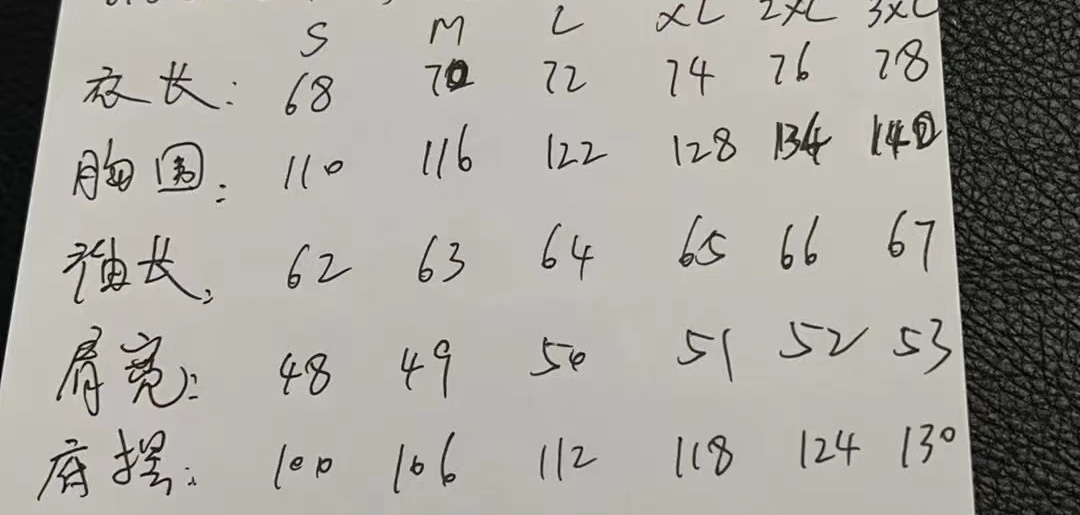 S M L XL 2XL 3XL
衣长: 68 70 72 74 76 78
胸围: 110 116 122 128 134 140
袖长: 62 63 64 65 66 67
肩宽: 48 49 50 51 52 53
底摆: 100 106 112 118 124 130